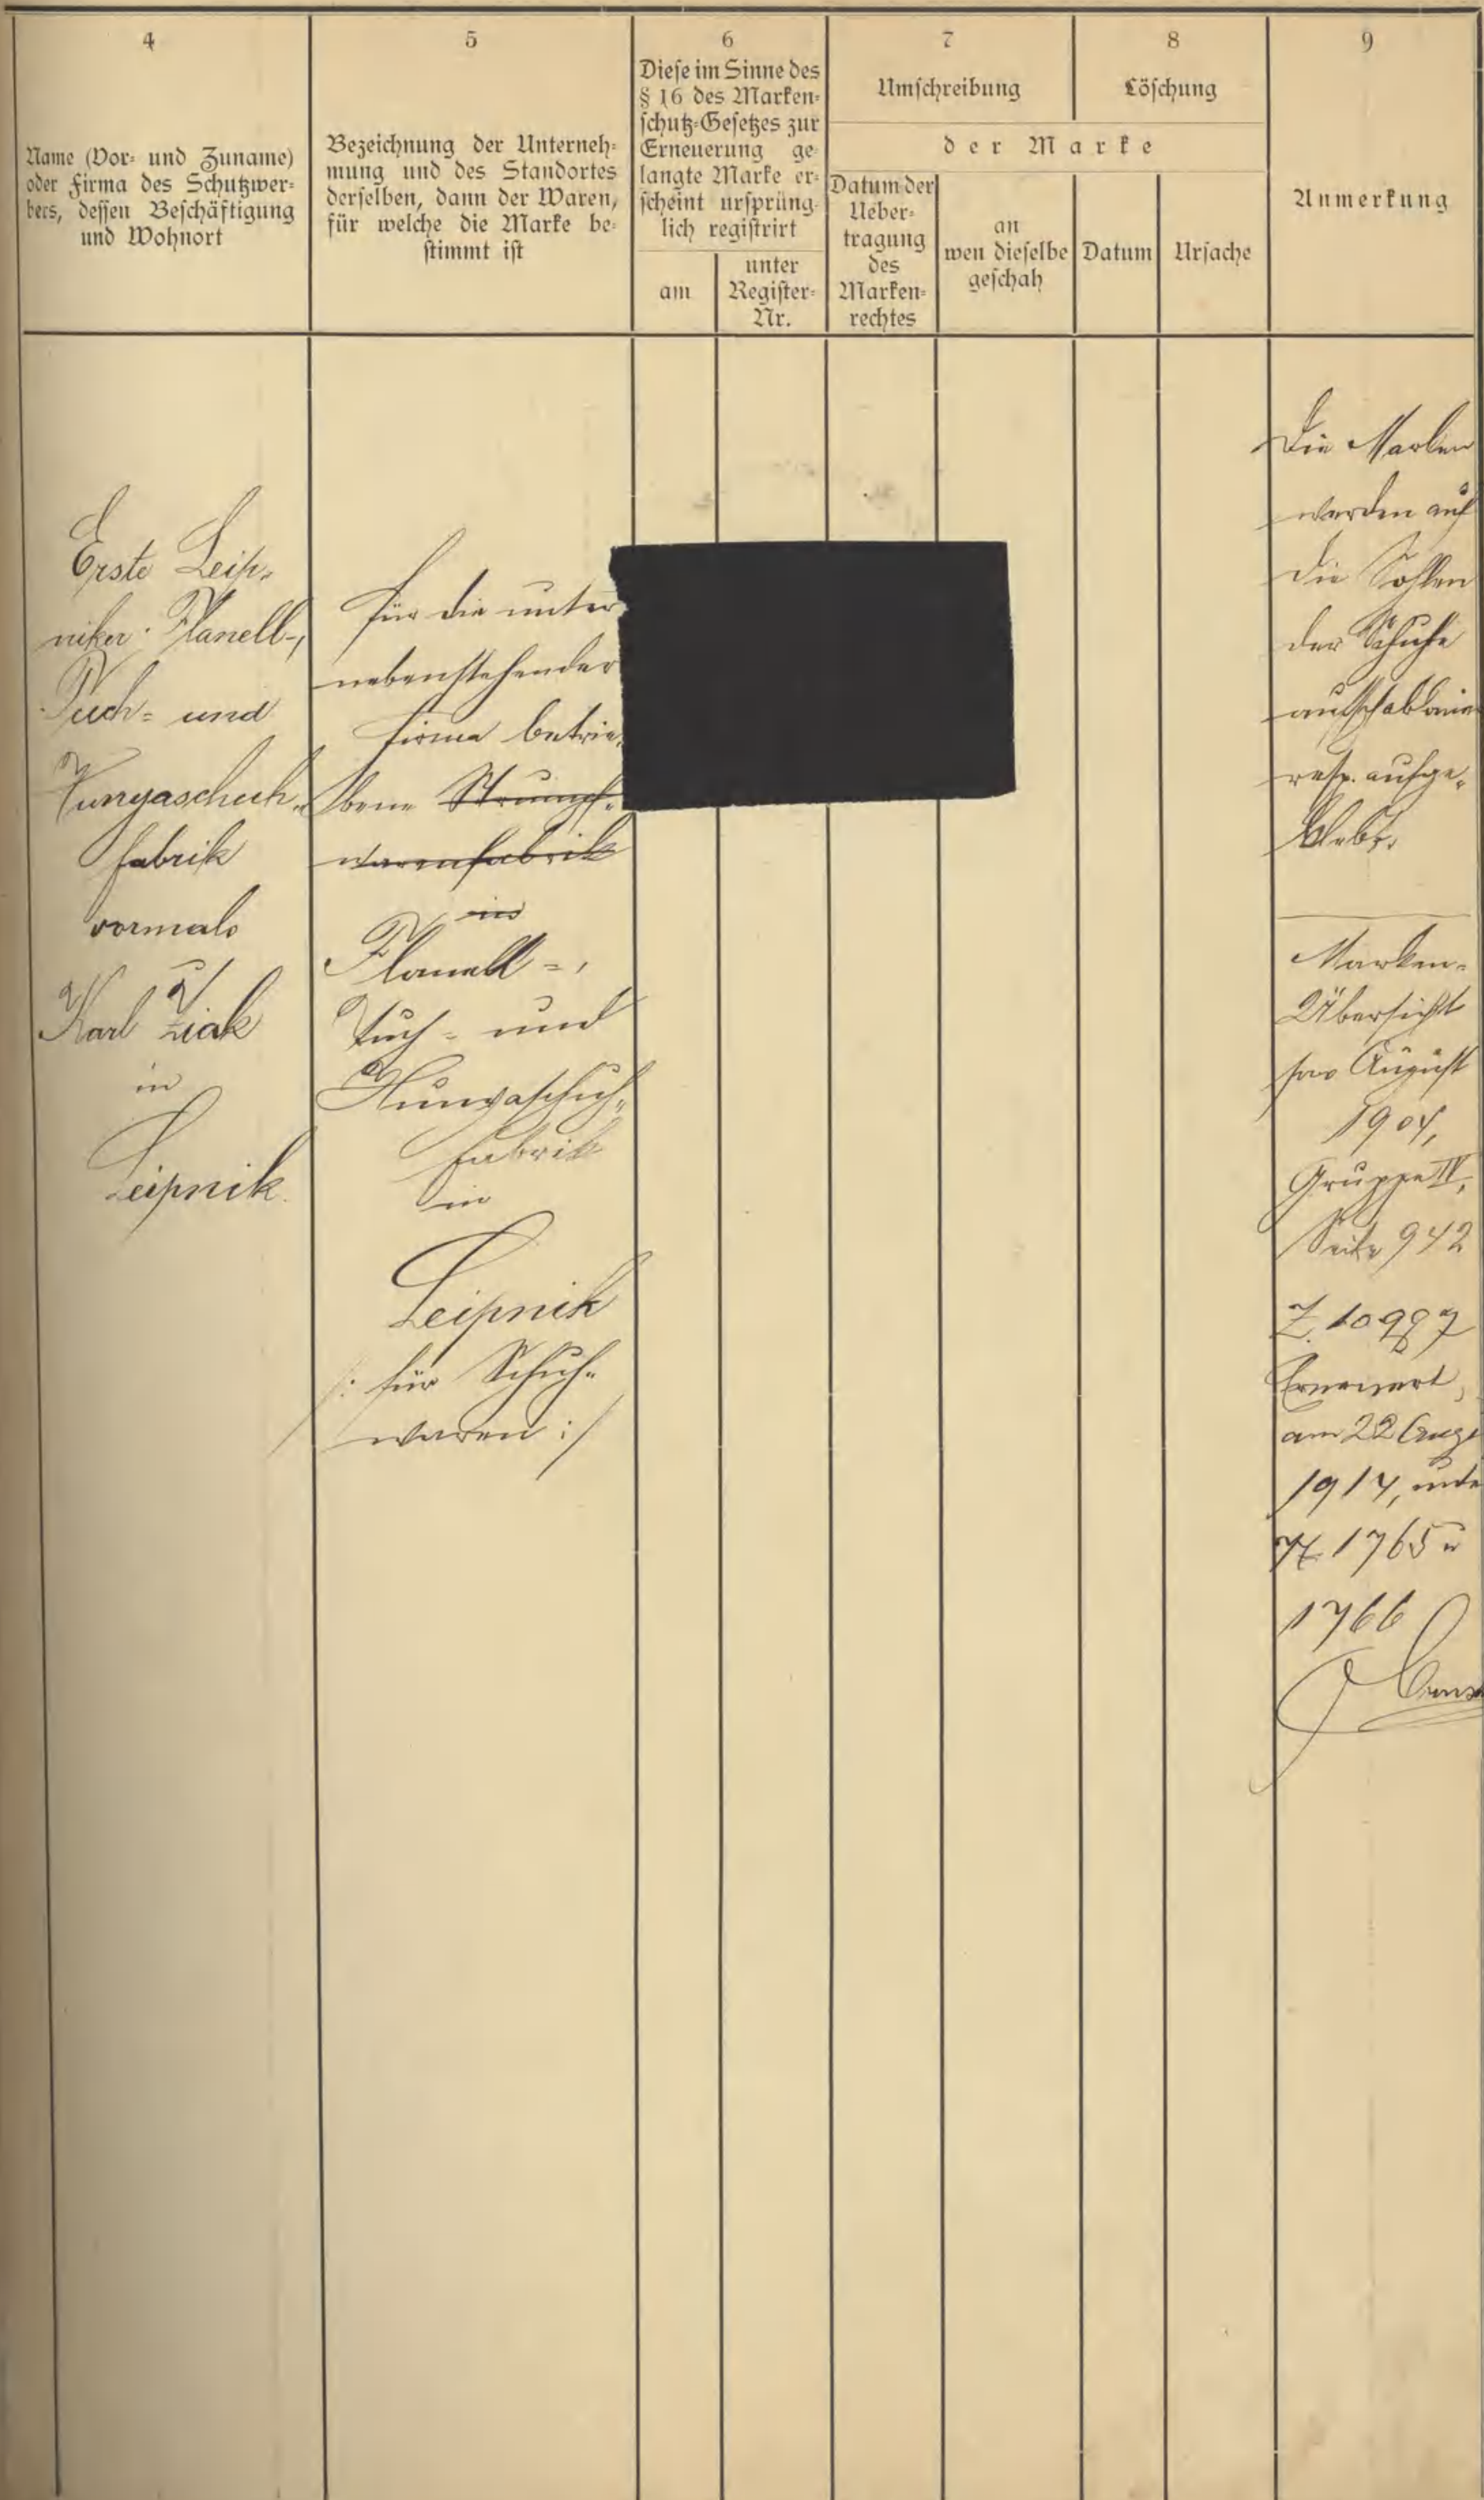 4
Name (Vor- und Zuname)
oder Firma des Schutzwer-
bers, dessen Beschäftigung
und Wohnort
5
Bezeichnung der Unterneh-
mung und des Standortes
derselben, dann der Waren,
für welche die Marke be-
stimmt ist
6
Diese im Sinne des
§ 16 des Marken-
schutz-Gesetzes zur
Erneuerung ge-
langte Marke er-
scheint ursprüng-
lich registrirt
am
unter
Register-
Nr.
7
Umschreibung
8
Löschung
der Marke
Datum der
Ueber-
tragung
des
Marken-
rechtes
an
wen dieselbe
geschah
Datum
Ursache
9
Anmerkung
Erste Leip-
niker Flanell-,
Tuch- und
Hungaschuh-
fabrik
vormals
Karl Žiak
in
Leipnik.
für die unter
nebenstehender
Firma betrie-
bene Strumpf-
warenfabrik
in
Flanell-,
Tuch- und
Hungaschuh-
fabrik
in
Leipnik
/: für Schuh-
waren :/
Die Marken
werden auf
die Sohlen
der Schuhe
resp. aufge-
klebt.
Marken-
Übersicht
pro August
1904,
Gruppe IV,
Seite 942
Z. 10997
Erneuert
am 22 Aug
1914, unte
1765 u
1766